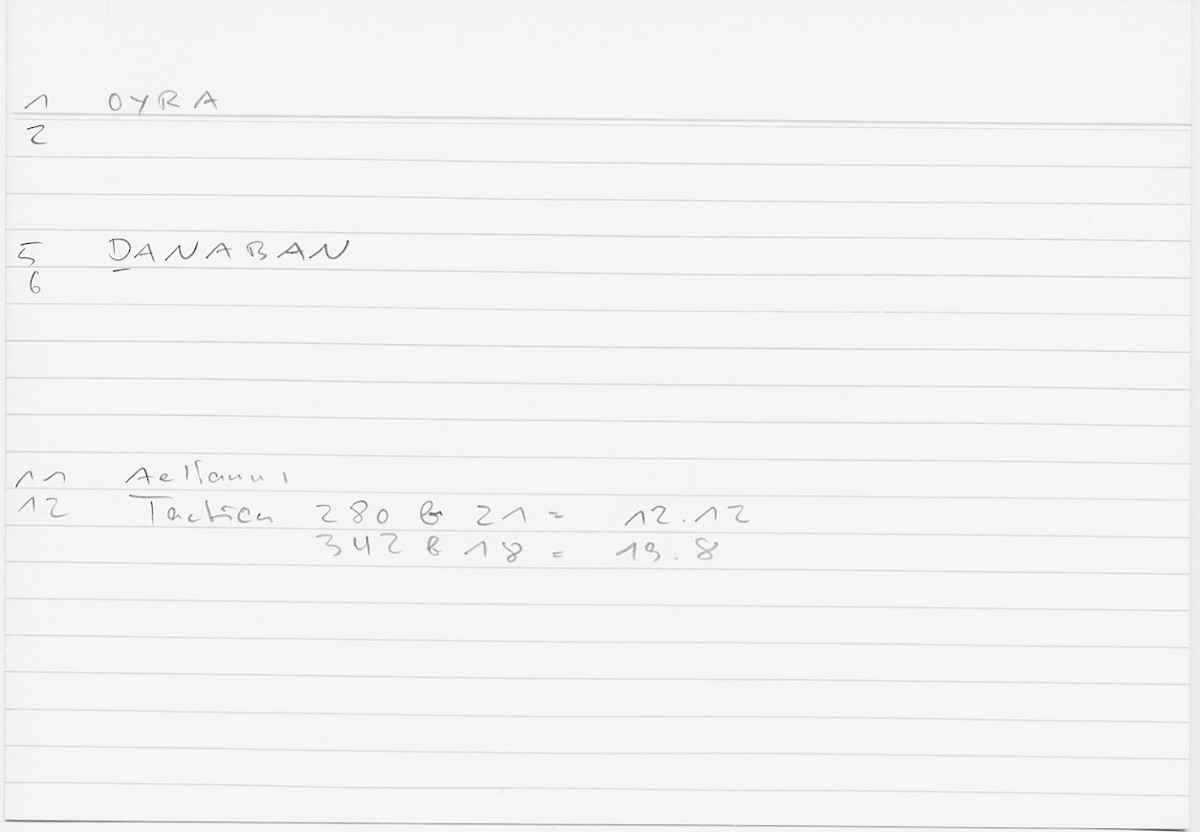 1 OYRA
2
5 DANABAN
6
11
12 Tactica 280 b 21 = 12.12
342 b 18 = 19.8